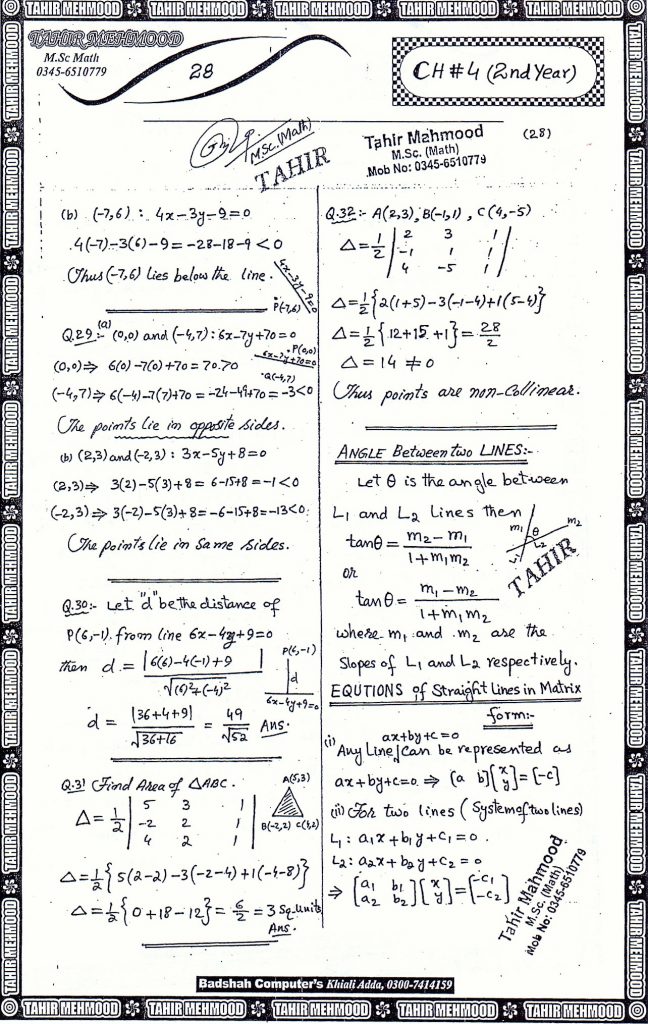 TAHIR MEHMOOD TAHIR MEHMOOD TAHIR MEHMOOD TAHIR MEHMOOD TAHIR MEHMOOD
TAHIR MEHMOOD
M.Sc Math
0345-6510779
28
CH # 4 (2nd Year)
M.Sc. (Math)
TAHIR
Tahir Mahmood
M.Sc. (Math)
Mob No: 0345-6510779
(28)
(b) (-7,6) : 4x-3y-9=0
4(-7)-3(6)-9 = -28-18-9 < 0
Thus (-7,6) lies below the line.
4x-3y-9=0
P(-7,6)
Q.29:- (a) (0,0) and (-4,7) : 6x-7y+70=0
(0,0) ⇒ 6(0)-7(0)+70 = 70.70
6x-7y+70=0
P(0,0)
Q(-4,7)
(-4,7) ⇒ 6(-4)-7(7)+70 = -24-49+70 = -3<0
The points lie in opposite sides.
(b) (2,3) and (-2,3) : 3x-5y+8=0
(2,3) ⇒ 3(2)-5(3)+8 = 6-15+8 = -1 < 0
(-2,3) ⇒ 3(-2)-5(3)+8 = -6-15+8 = -13<0
The points lie in Same sides.
Q.30:- Let "d" be the distance of
P(6,-1) from line 6x-4y+9=0
then d = |6(6)-4(-1)+9| / √(6)²+(-4)²
P(6,-1)
d
6x-4y+9=0
d = |36+4+9| / √36+16 = 49/√52 Ans.
Q.31 Find Area of △ABC.
A(5,3)
B(-2,2) C(4,2)
△ = 1/2 | 5 3 1 |
| -2 2 1 |
| 4 2 1 |
△ = 1/2 {5(2-2)-3(-2-4)+1(-4-8)}
△ = 1/2 {0+18-12} = 6/2 = 3 Sq.units
Ans.
Q.32:- A(2,3), B(-1,1), C(4,-5)
△ = 1/2 | 2 3 1 |
| -1 1 1 |
| 4 -5 1 |
△ = 1/2 {2(1+5)-3(-1-4)+1(5-4)}
△ = 1/2 {12+15+1} = 28/2
△ = 14 ≠ 0
Thus points are non-Collinear.
ANGLE Between two LINES:-
Let θ is the angle between
L1 and L2 Lines then
tanθ = m2-m1 / 1+m1m2
m1
θ
m2
L1
L2
TAHIR
or
tanθ = m1-m2 / 1+m1m2
where m1 and m2 are the
Slopes of L1 and L2 respectively.
EQUTIONS of Straight Lines in Matrix
form:-
ax+by+c=0
(i) Any Line can be represented as
ax+by+c=0 ⇒ [a b][x y] = [-c]
(ii) For two lines (System of two lines)
L1: a1x+b1y+c1=0.
L2: a2x+b2y+c2=0
⇒ [a1 b1 a2 b2][x y] = [-c1 -c2]
Tahir Mahmood
M.Sc. (Math)
Mob No: 0345-6510779
Badshah Computer's Khiali Adda, 0300-7414159
TAHIR MEHMOOD TAHIR MEHMOOD TAHIR MEHMOOD TAHIR MEHMOOD TAHIR MEHMOOD